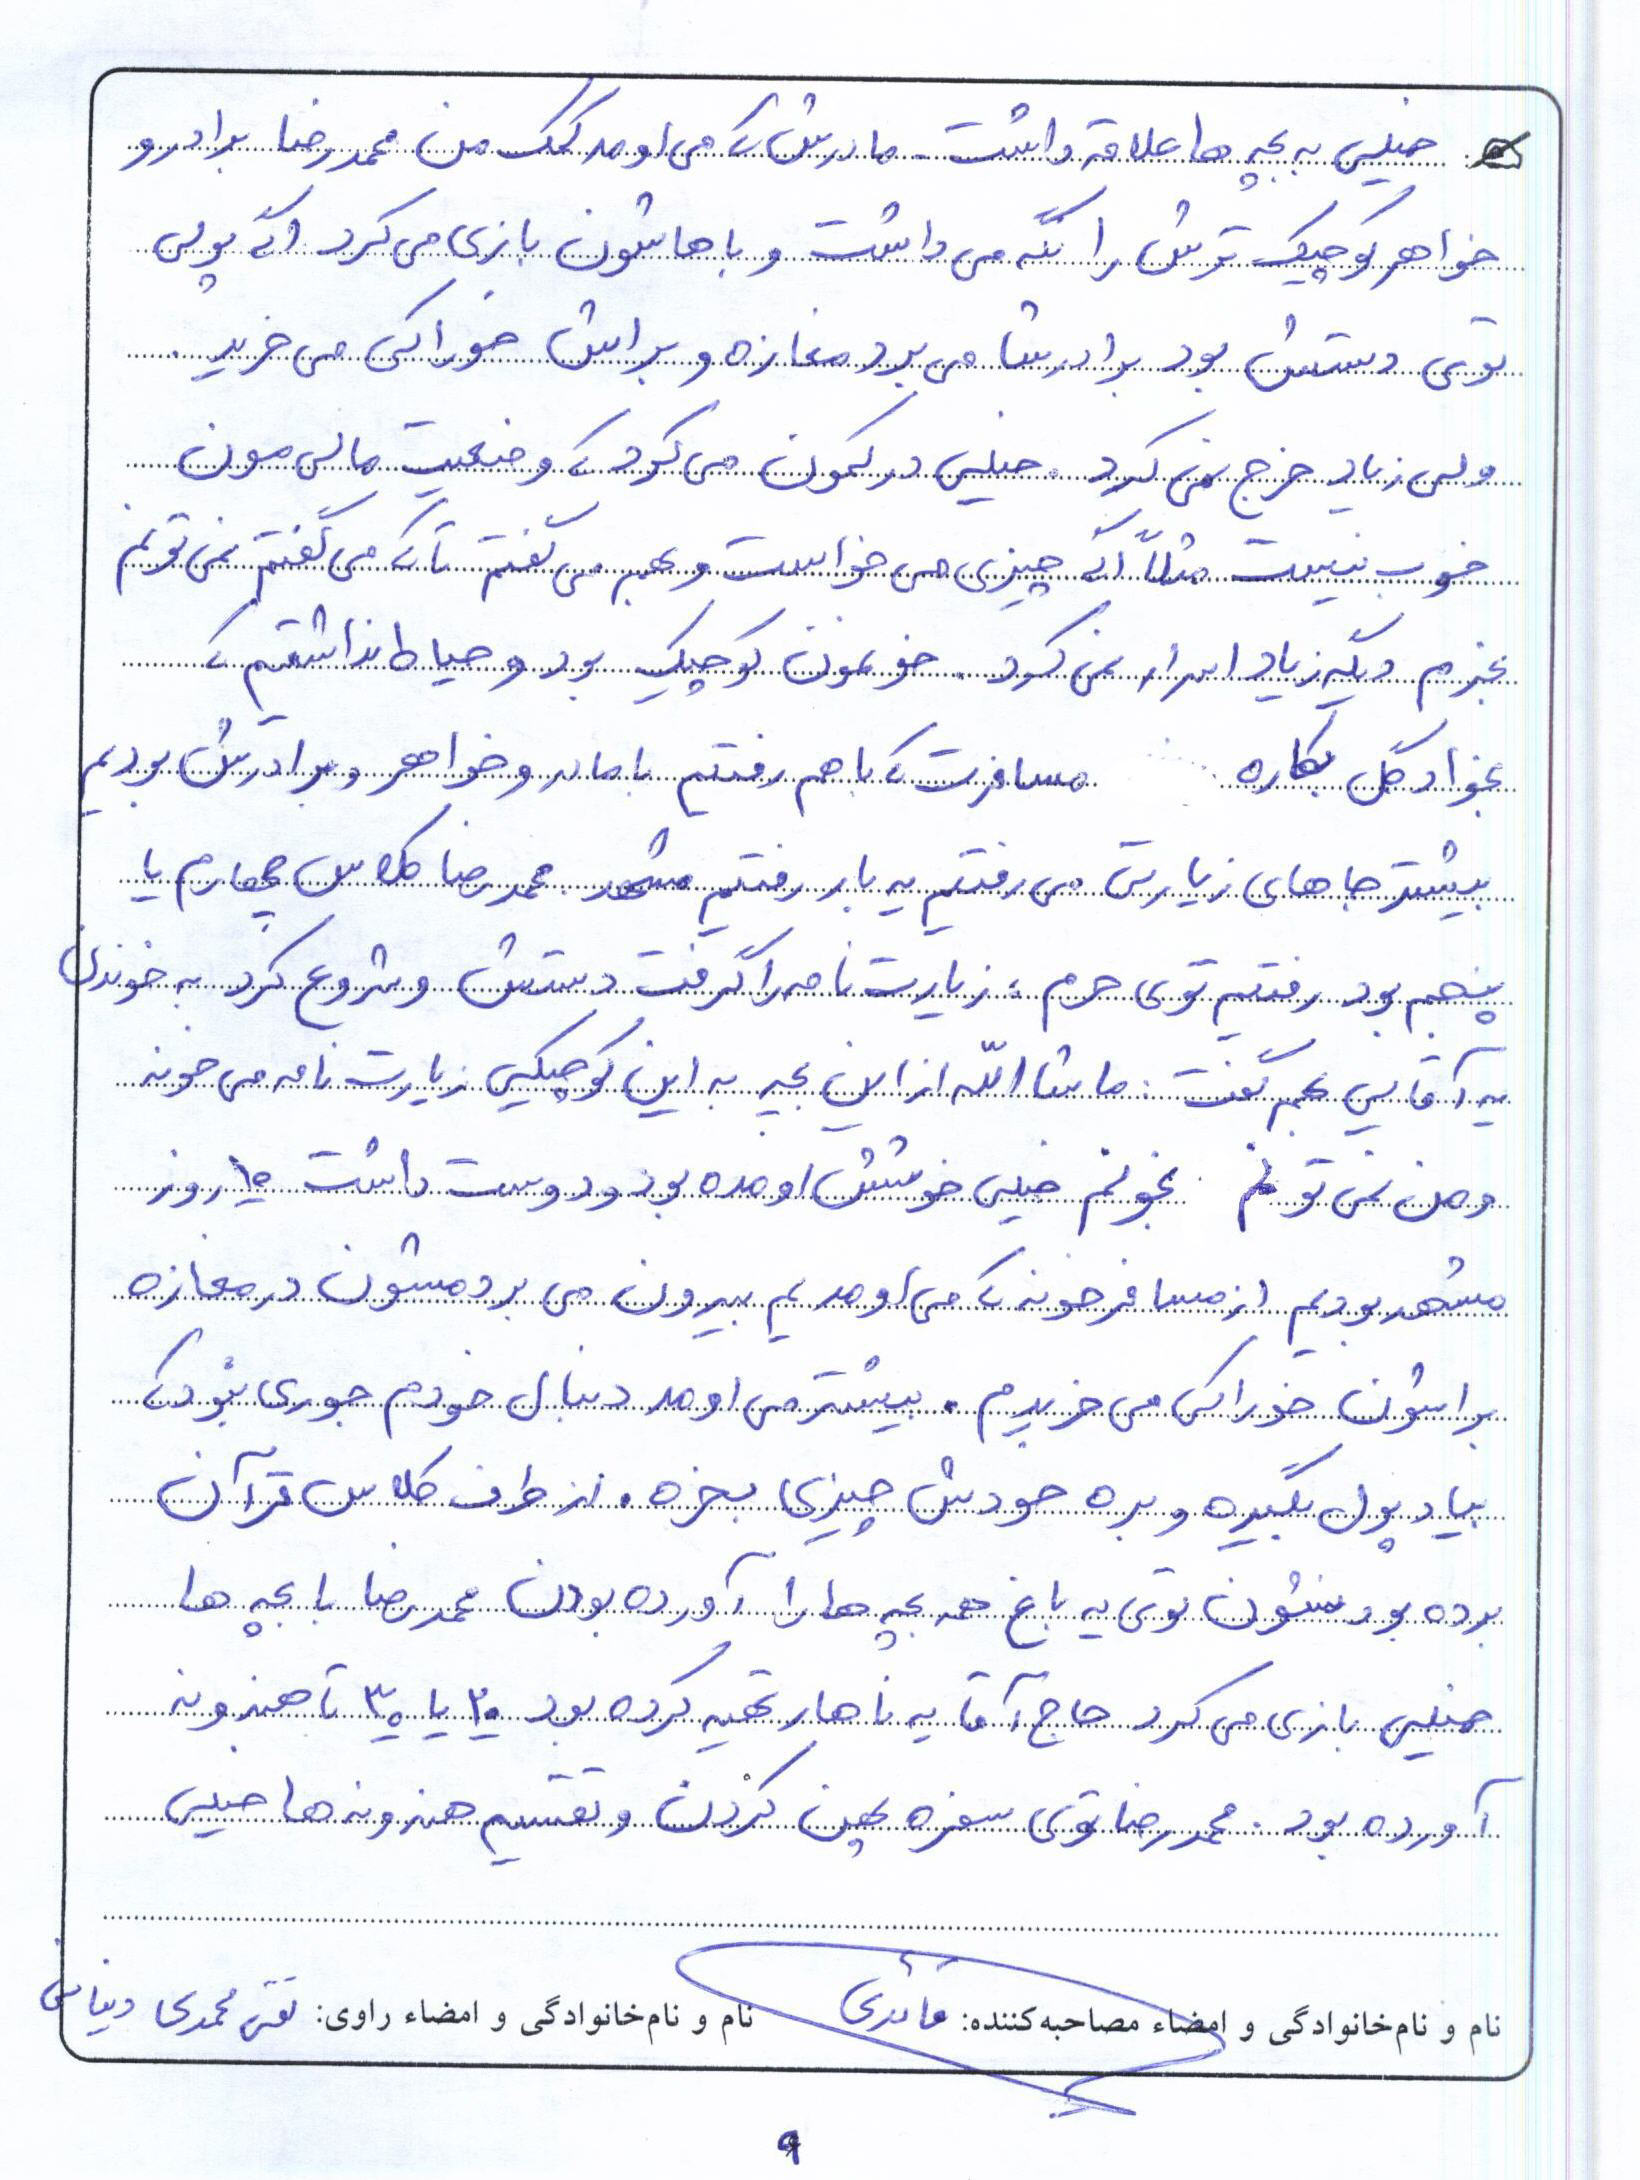 خیلی به بچه ها علاقه داشت. مادرش که می اومد کمک من محمدرضا برادر و
خواهر کوچیک ترش را نگه می داشت و باهاشون بازی می کرد اگه پولی
توی دستش بود برادرشا می برد مغازه و براش خوراکی می خرید.
ولی زیاد خرج نمی کرد. خیلی درکمون می کرد که وضعیت مالی مون
خوب نیست مثلاً اگه چیزی می خواست و بهم می گفتم تا که می گفتم نمی تونم
بخرم دیگه زیاد اسرار نمی کرد. خونمون کوچیک بود و حیاط نداشتیم که
بخواد گل بکاره مسافرت که با هم رفتیم با مادر و خواهر و برادرش بودیم
بیشتر جاهای زیارتی می رفتیم یه بار رفتیم مشهد. محمدرضا کلاس چهارم یا
پنجم بود رفتیم توی حرم، زیارت نامه را گرفت دستش و شروع کرد به خوندن
یه آقایی بهم گفت: ماشاالله از این بچه به این کوچیکی زیارت نامه می خونه
و من نمی تونم بخونم خیلی خوشش اومده بود و دوست داشت ۱۵ روز
مشهد بودیم از مسافرخونه که می اومدیم بیرون می بردمشون در مغازه
براشون خوراکی می خریدم. بیشتر می اومد دنبال خودم جوری نبود که
بیاد پول بگیره و بره خودش چیزی بخره. از طرف کلاس قرآن
برده بودنشون توی یه باغ همه بچه ها را آورده بودن محمدرضا با بچه ها
خیلی بازی می کرد حاج آقا یه ناهار تهیه کرده بود ۲۰ یا ۳۰ تا هندونه
آورده بود. محمدرضا توی سفره پهن کردن و تقسیم هندونه ها خیلی
نام و نام‌خانوادگی و امضاء مصاحبه‌کننده: نام و نام‌خانوادگی و امضاء راوی: نقی محمدی
۹